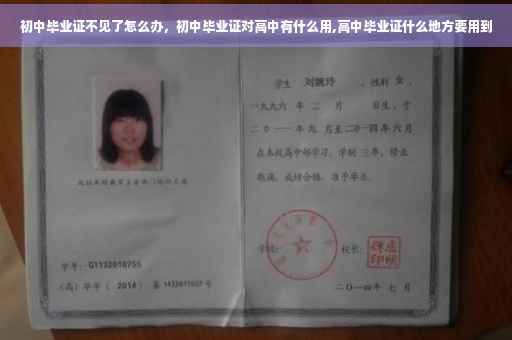 初中毕业证不见了怎么办，初中毕业证对高中有什么用,高中毕业证什么地方要用到
学生 刘婉玲 ，性别 女 ，
一九九六 年 二 月 日生，于
二〇一一 年 九 月至 二〇一四 年 六 月
在本校高中部学习，学制 三 年，修业
期满，成绩合格，准予毕业。
学校： 校长：
学号： G1132010755
（高）毕字（ 2014 ）第 1432011007 号
二〇一四年 七 月